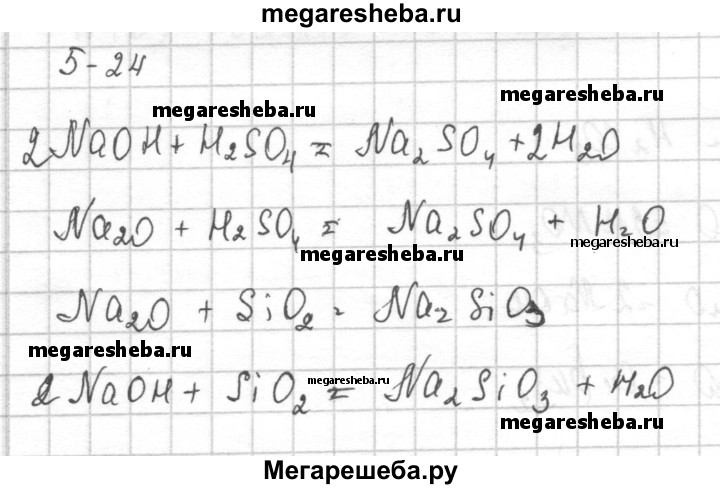 megaresheba.ru
5-24
megaresheba.ru
megaresheba.ru
2NaOH + H2SO4 = Na2SO4 + 2H2O
Na2O + H2SO4 = Na2SO4 + H2O
megaresheba.ru
megaresheba.ru
Na2O + SiO2 = Na2SiO3
megaresheba.ru
megaresheba.ru
2NaOH + SiO2 = Na2SiO3 + H2O
megaresheba.ru
Мегарешеба.ру